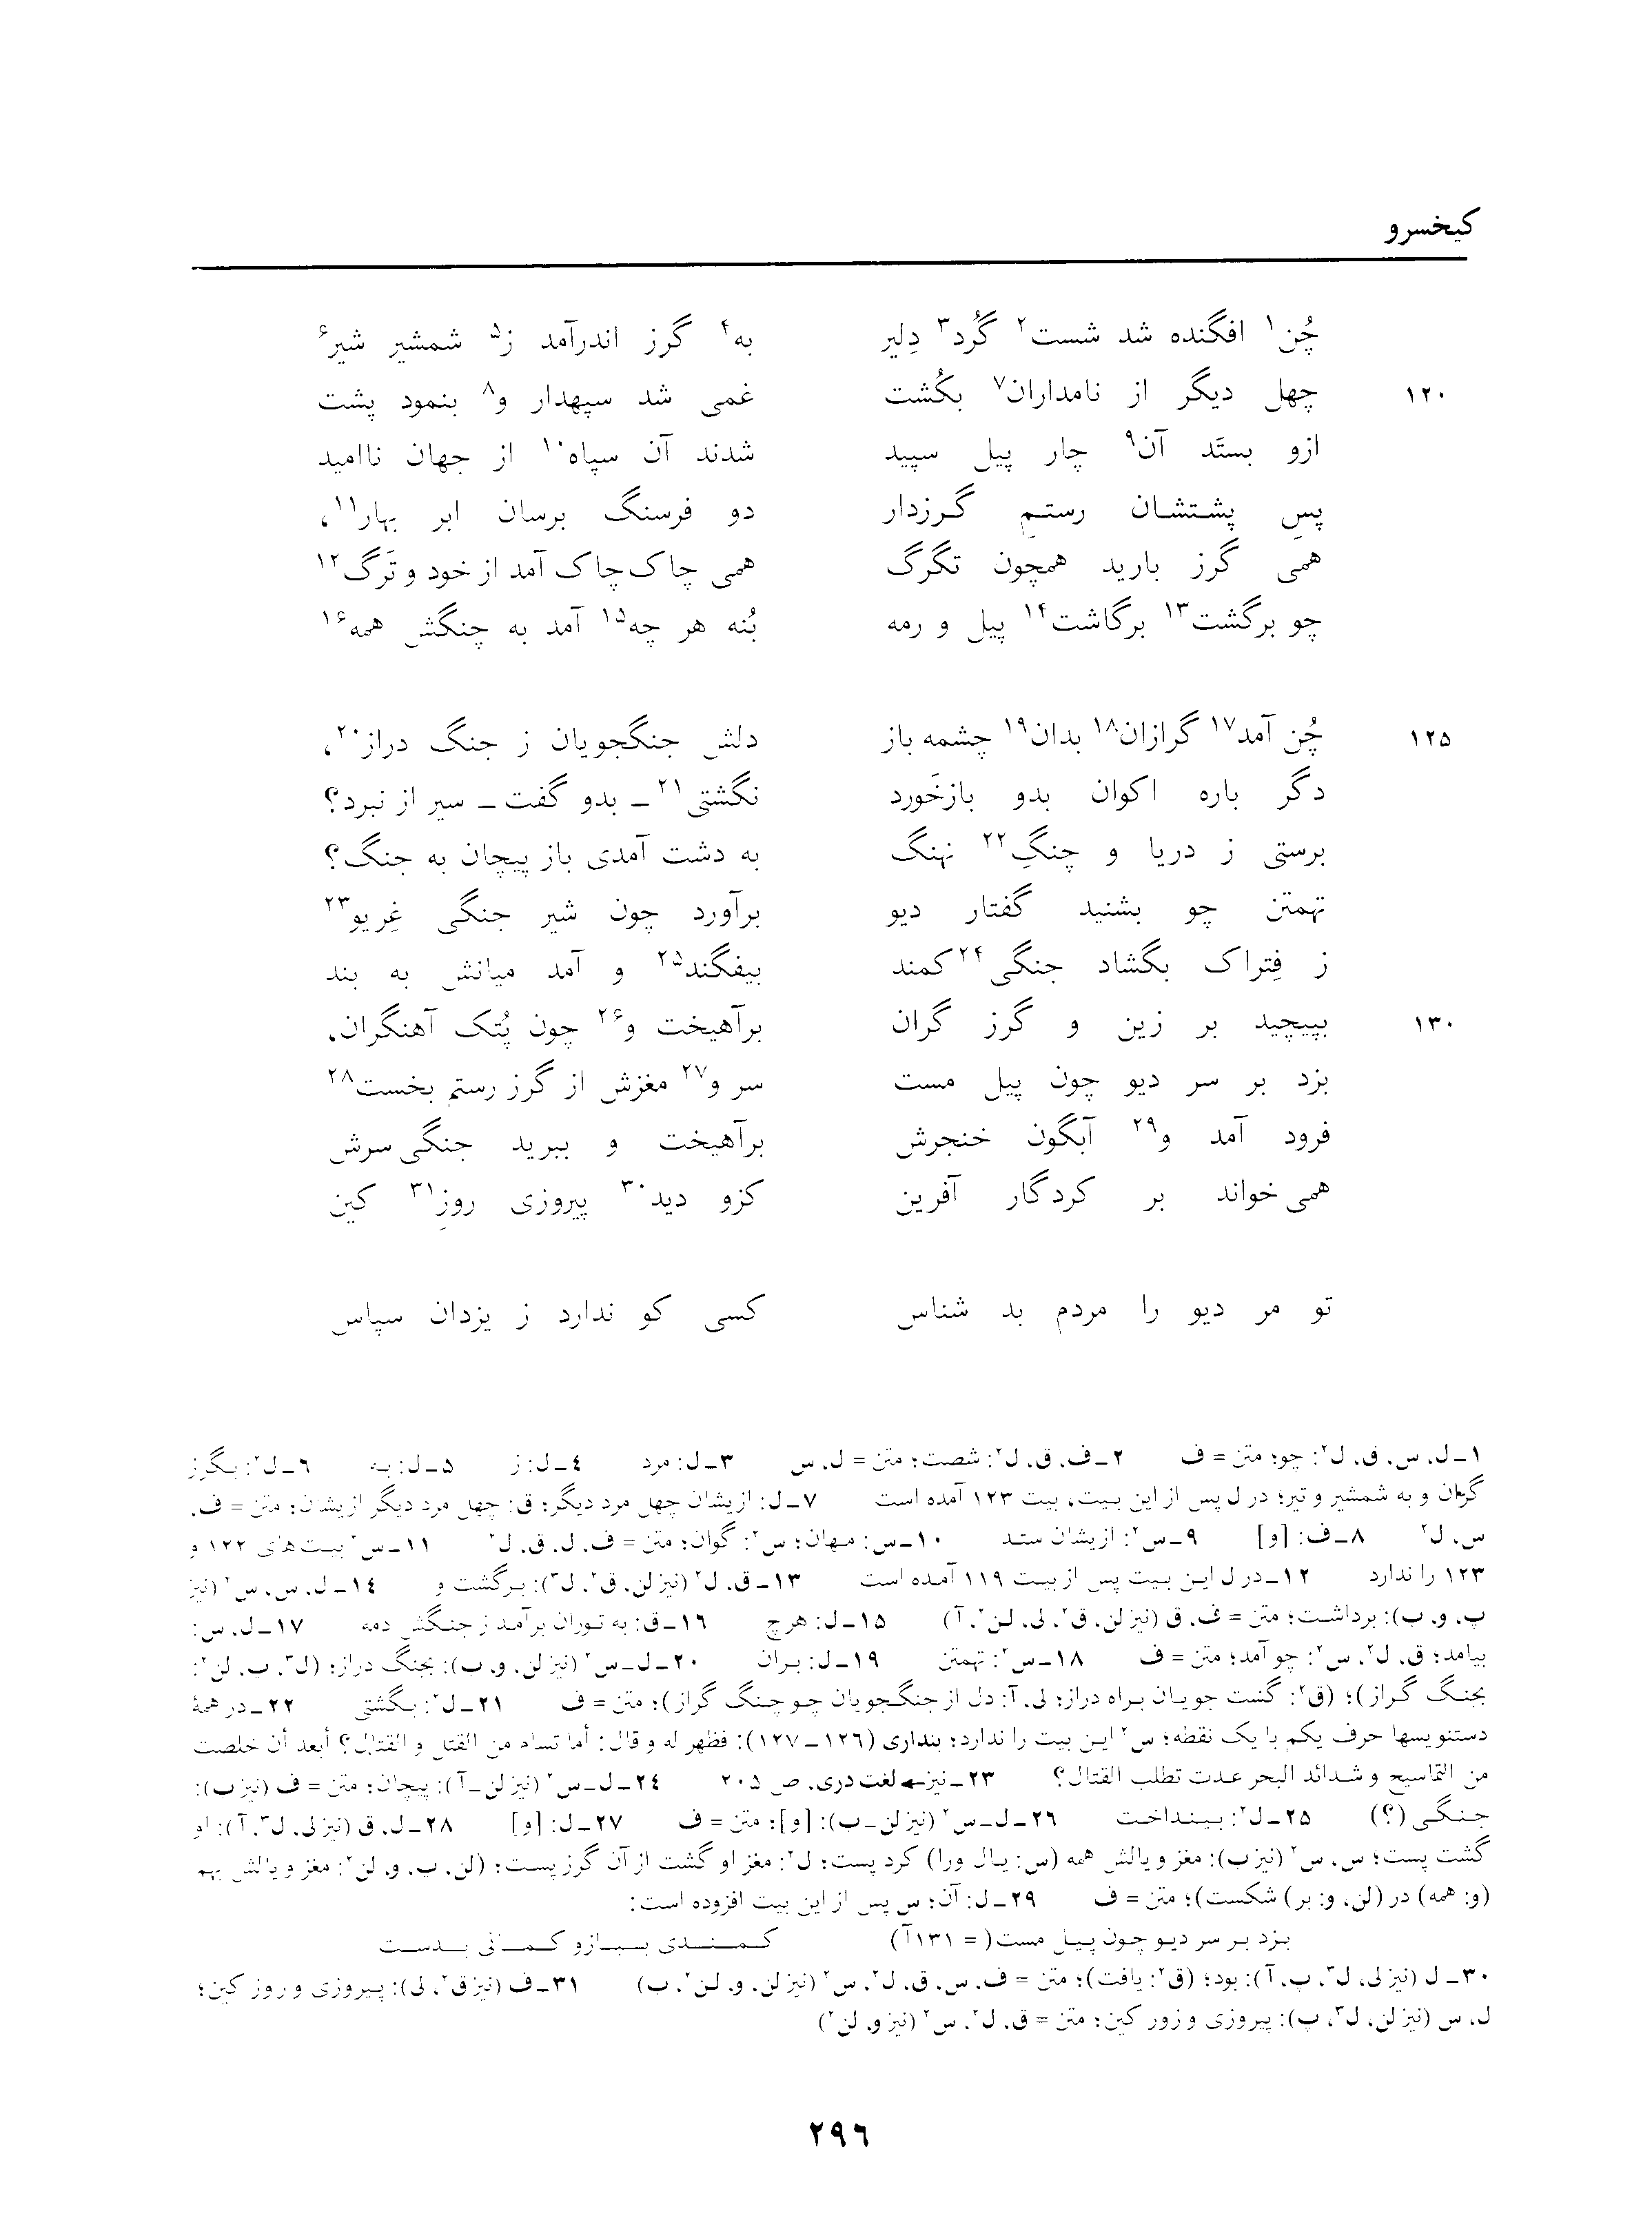 کیخسرو
چُن۱ افگنده شد شست۲ گُرد۳ دِلیر به۴ گرز اندرآمد ز۵ شمشیر شیر۶
۱۲۰ چهل دیگر از نامداران۷ بکُشت غمی شد سپهدار و۸ بنمود پشت
ازو بستَد آن۹ چار پیل سپید شدند آن سپاه۱۰ از جهان ناامید
پسِ پشتشان رستمِ گرزدار دو فرسنگ برسان ابر بهار۱۱،
همی گرز بارید همچون تگرگ همی چاک‌چاک آمد از خود و تَرگ۱۲
چو برگشت۱۳ برگاشت۱۴ پیل و رمه بُنه هر چه۱۵ آمد به چنگش همه۱۶
۱۲۵ چُن آمد۱۷ گرازان۱۸ بدان۱۹ چشمه باز دلش جنگجویان ز جنگ دراز۲۰،
دگر باره اکوان بدو بازخَورد نگشتی۲۱ ـ بدو گفت ـ سیر از نبرد؟
برستی ز دریا و چنگِ۲۲ نهنگ به دشت آمدی باز پیچان به جنگ؟
تهمتن چو بشنید گفتار دیو برآورد چون شیر جنگی غِریو۲۳
ز فِتراک بگشاد جنگی۲۴ کمند بیفگند۲۵ و آمد میانش به بند
۱۳۰ بپیچید بر زین و گرز گران برآهیخت و۲۶ چون پُتک آهنگران،
بزد بر سر دیو چون پیل مست سر و۲۷ مغزش از گرز رستم بخست۲۸
فرود آمد و۲۹ آبگون خنجرش برآهیخت و ببرید جنگی سرش
همی خواند بر کردگار آفرین کزو دید۳۰ پیروزی روزِ۳۱ کین
تو مر دیو را مردم بد شناس کسی کو ندارد ز یزدان سپاس
۱ـ ل، س، ق، ل۲: چو؛ متن = ف ۲ـ ف، ق، ل۲: شصت؛ متن = ل، س ۳ـ ل: مرد ٤ـ ل: ز ۵ـ ل: به ٦ـ ل۲: بگرز
گران و به شمشیر و تیر؛ در ل پس از این بیت، بیت ۱۲۳ آمده است ۷ـ ل: ازیشان چهل مرد دیگر؛ ق: چهل مرد دیگر ازیشان؛ متن = ف،
س، ل۲ ۸ـ ف: [و] ۹ـ س۲: ازیشان ستد ۱۰ـ س: مهان؛ س۲: گوان؛ متن = ف، ل، ق، ل۲ ۱۱ـ س۲ بیت‌های ۱۲۲ و
۱۲۳ را ندارد ۱۲ـ در ل این بیت پس از بیت ۱۱۹ آمده است ۱۳ـ ق، ل۲ (نیز لن، ق۲، ل۳): برگشت و ۱٤ـ ل، س، س۲ (نیز
پ، و، ب): برداشت؛ متن = ف، ق (نیز لن، ق۲، لی، لن۲، آ) ۱۵ـ ل: هرچ ۱٦ـ ق: به توران برآمد ز جنگش دمه ۱۷ـ ل، س:
بیامد؛ ق، ل۲، س۲: چو آمد؛ متن = ف ۱۸ـ س۲: تهمتن ۱۹ـ ل: بران ۲۰ـ ل ـ س۲ (نیز لن، و، ب): بجنگ دراز؛ (ل۳، پ، لن۲:
بجنگ گراز)؛ (ق۲: گشت جویان براه دراز؛ لی، آ: دل از جنگجویان چو چنگ گراز)؛ متن = ف ۲۱ـ ل۲: بگشتی ۲۲ـ در همهٔ
دستنویسها حرف یکم با یک نقطه؛ س۲ این بیت را ندارد؛ بنداری (۱۲٦ـ۱۲۷): فظهر له و قال: أما تسأم من القتل و القتال؟ أبعد أن خلصت
من التماسیح و شدائد البحر عدت تطلب القتال؟ ۲۳ـ نیز ← لغت دری، ص ۲۰۵ ۲٤ـ ل ـ س۲ (نیز لن ـ آ): پیچان؛ متن = ف (نیز ب):
جنگی (؟) ۲۵ـ ل۲: بینداخت ۲٦ـ ل ـ س۲ (نیز لن ـ ب): [و]؛ متن = ف ۲۷ـ ل: [و] ۲۸ـ ل، ق (نیز لی، ل۳، آ): او
گشت پست؛ س، س۲ (نیز ب): مغز و یالش همه (س: یال ورا) کرد پست؛ ل۲: مغز او گشت از آن گرز پست؛ (لن، پ، و، لن۲: مغز و یالش بهم
(و: همه) در (لن، و: بر) شکست)؛ متن = ف ۲۹ـ ل: آن؛ س پس از این بیت افزوده است:
بزد بر سر دیو چون پیل مست (= ۱۳۱آ) کمندی ببازو کمانی بدست
۳۰ـ ل (نیز لی، ل۳، پ، آ): بود؛ (ق۲: یافت)؛ متن = ف، س، ق، ل۲، س۲ (نیز لن، و، لن۲، ب) ۳۱ـ ف (نیز ق۲، لی): پیروزی و روز کین؛
ل، س (نیز لن، ل۳، پ): پیروزی و زور کین؛ متن = ق، ل۲، س۲ (نیز و، لن۲)
۲۹٦